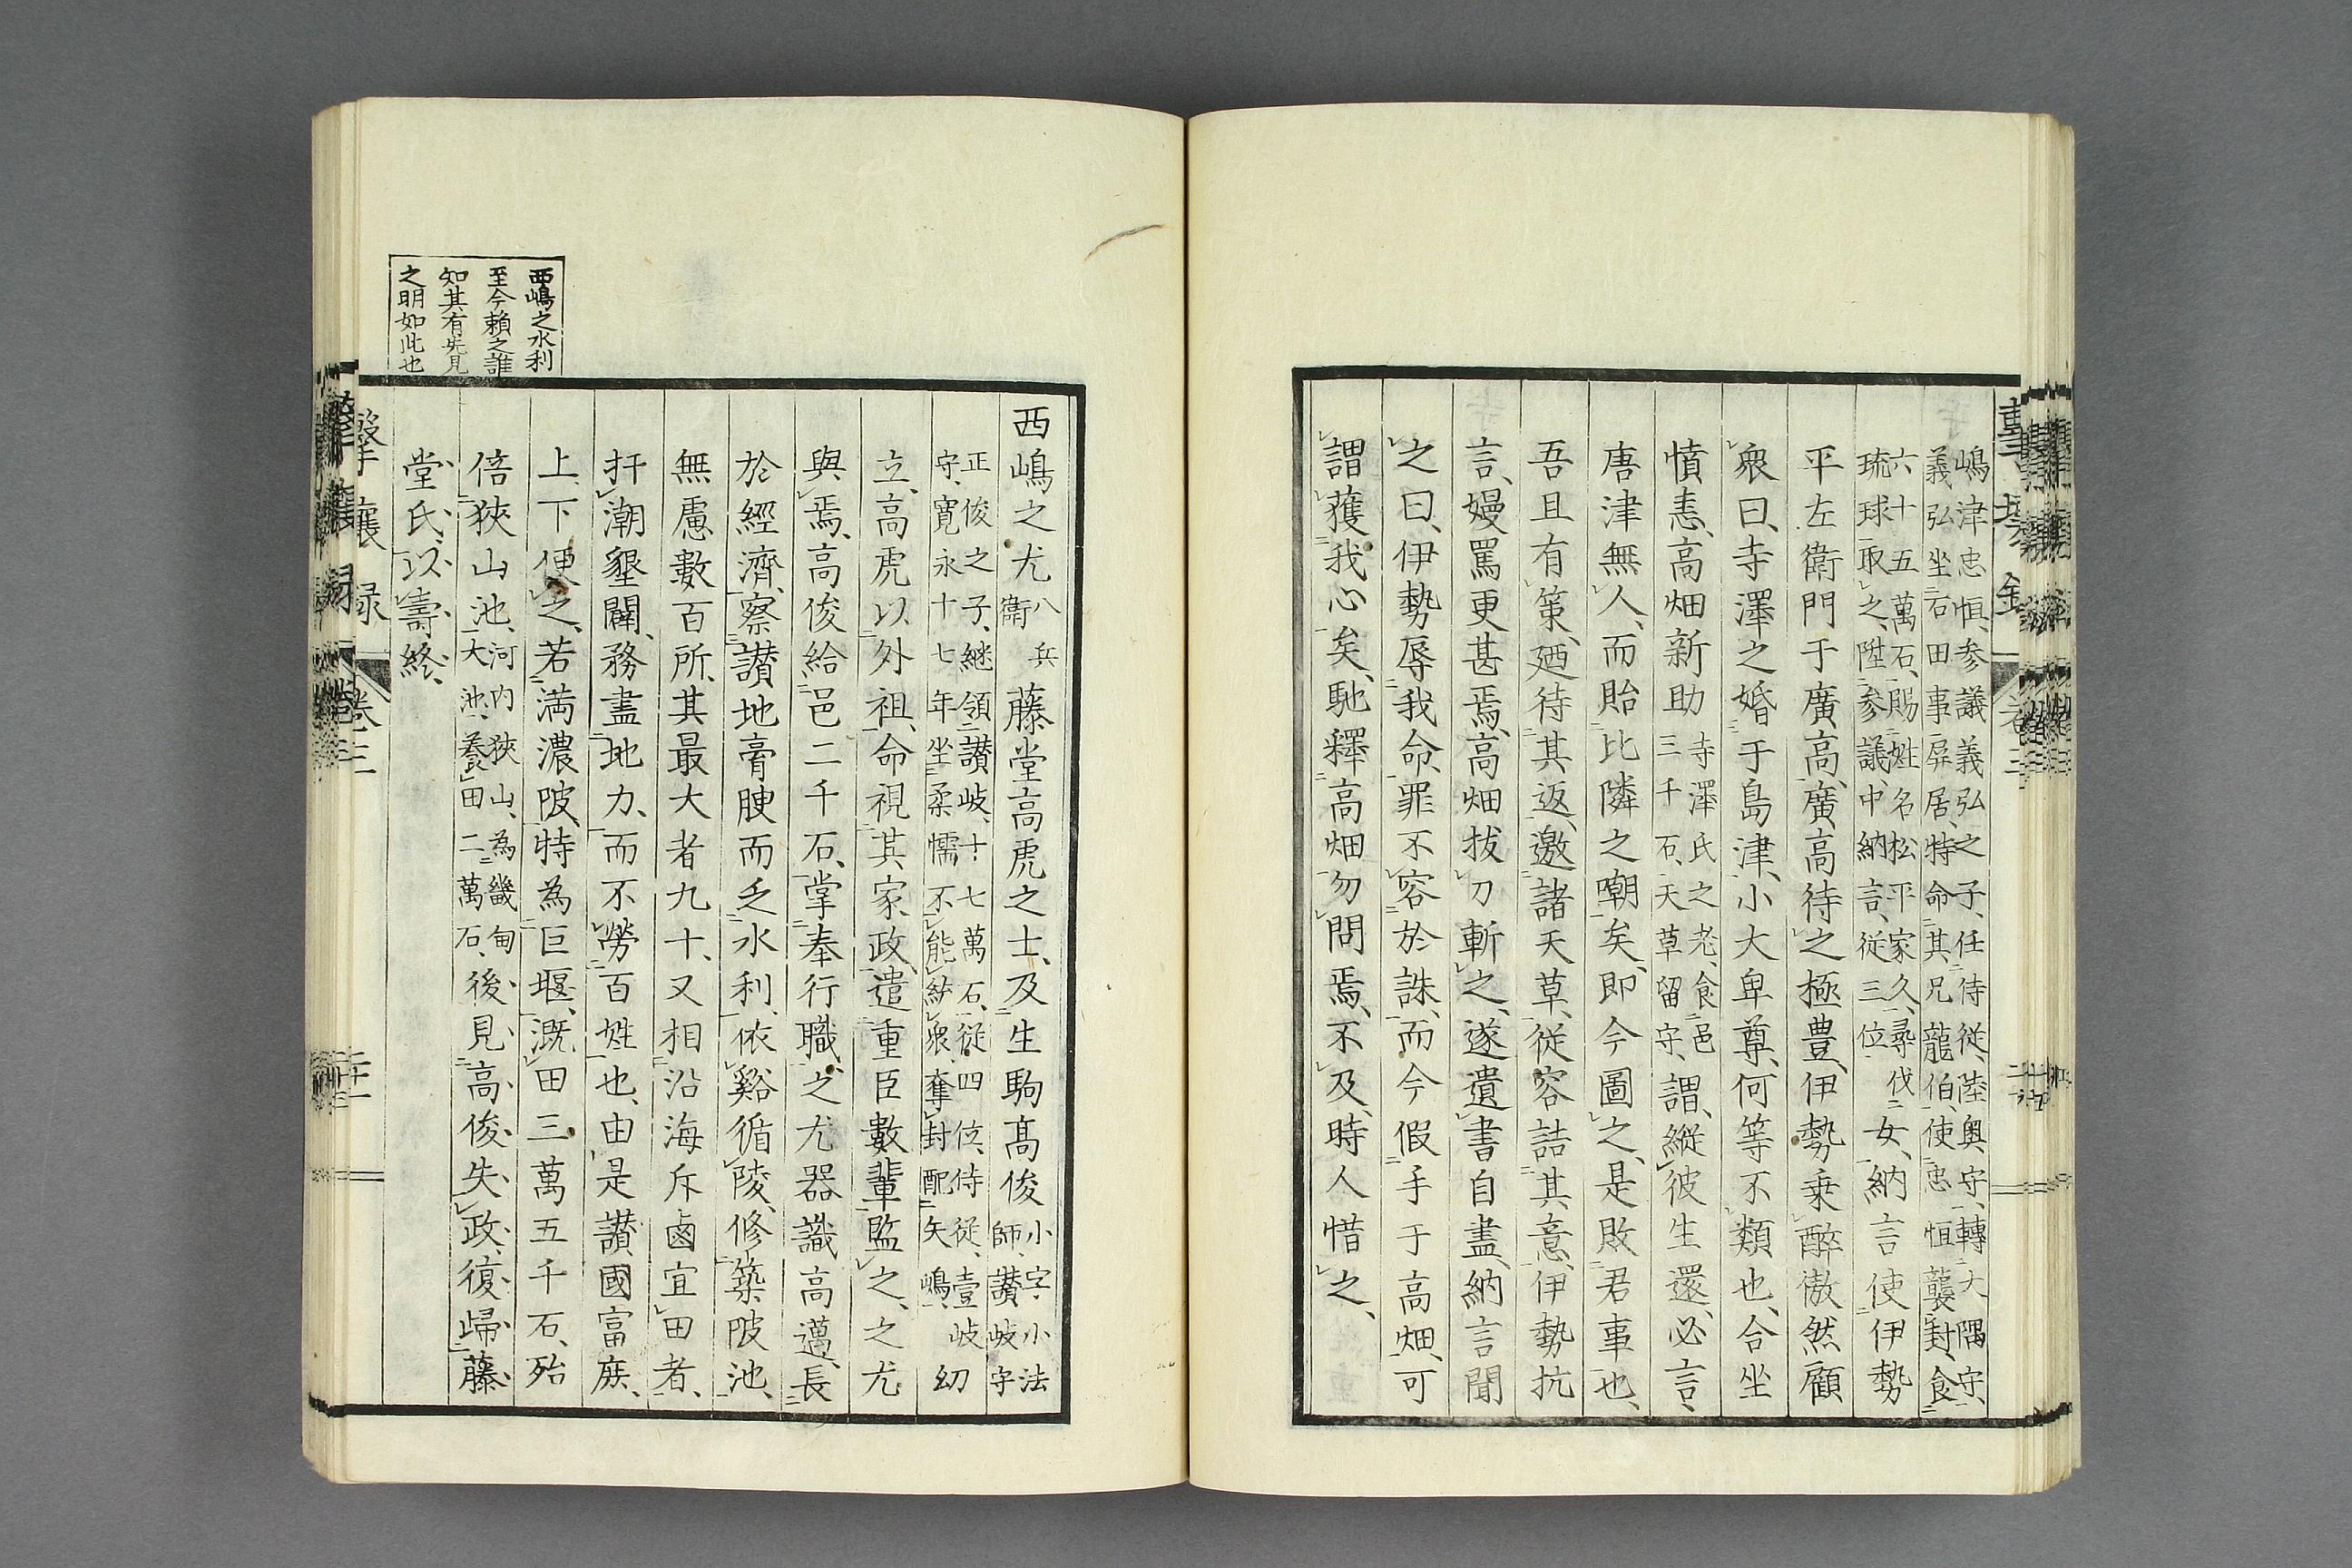 嶋津忠恒、参議義弘之子、任侍従、陸奥守、轉大隅守、
義弘坐石田事屏居、特命其兄龍伯、使忠恒襲封、食
六十五萬石、賜姓名松平家久、尋伐
琉球取之、陞参議、中納言、従三位、
女、納言使伊勢
平左衛門于廣高、廣高待之極豊、伊勢乗醉傲然顧
衆曰、寺澤之婚于島津、小大卑尊、何等不類也、合坐
憤恚、高畑新助
寺澤氏之老、食邑
三千石、天草留守、
謂、縦彼生還、必言、
唐津無人、而貽比隣之嘲矣、即今圖之、是敗君事也、
吾且有策、廼待其返、邀諸天草、従容詰其意、伊勢抗
言、嫚罵更甚焉、高畑拔刀斬之、遂遺書自盡、納言聞
之曰、伊勢辱我命、罪不容於誅、而今假手于高畑、可
謂獲我心矣、馳釋高畑勿問焉、不及、時人惜之、
西嶋之水利
至今賴之誰
知其有先見
之明如此也
西嶋之尤
八兵
衛
藤堂高虎之士、及生駒髙俊
小字小法
師、讃岐守
正俊之子、継領讃岐、十七萬石、従四位、侍従、壹岐
守、寛永十七年坐柔懦不能紏衆奪封配矢嶋、
幼
立、高虎以外祖、命視其家政、遣重臣數輩監之、之尤
與焉、高俊給邑二千石、掌奉行職、之尤器識高邁、長
於經濟、察讃地膏腴而乏水利、依谿循陵、修築陂池、
無慮數百所、其最大者九十、又相沿海斥鹵宜田者、
扞潮墾闢、務盡地力、而不勞百姓也、由是讃國富庶、
上下便之、若満濃陂、特為巨堰、漑田三萬五千石、殆
倍狹山池、
河内狹山、為畿甸
大池、養田二萬石、
後見高俊失政、復歸藤
堂氏、以壽終、
擊壤録
卷三